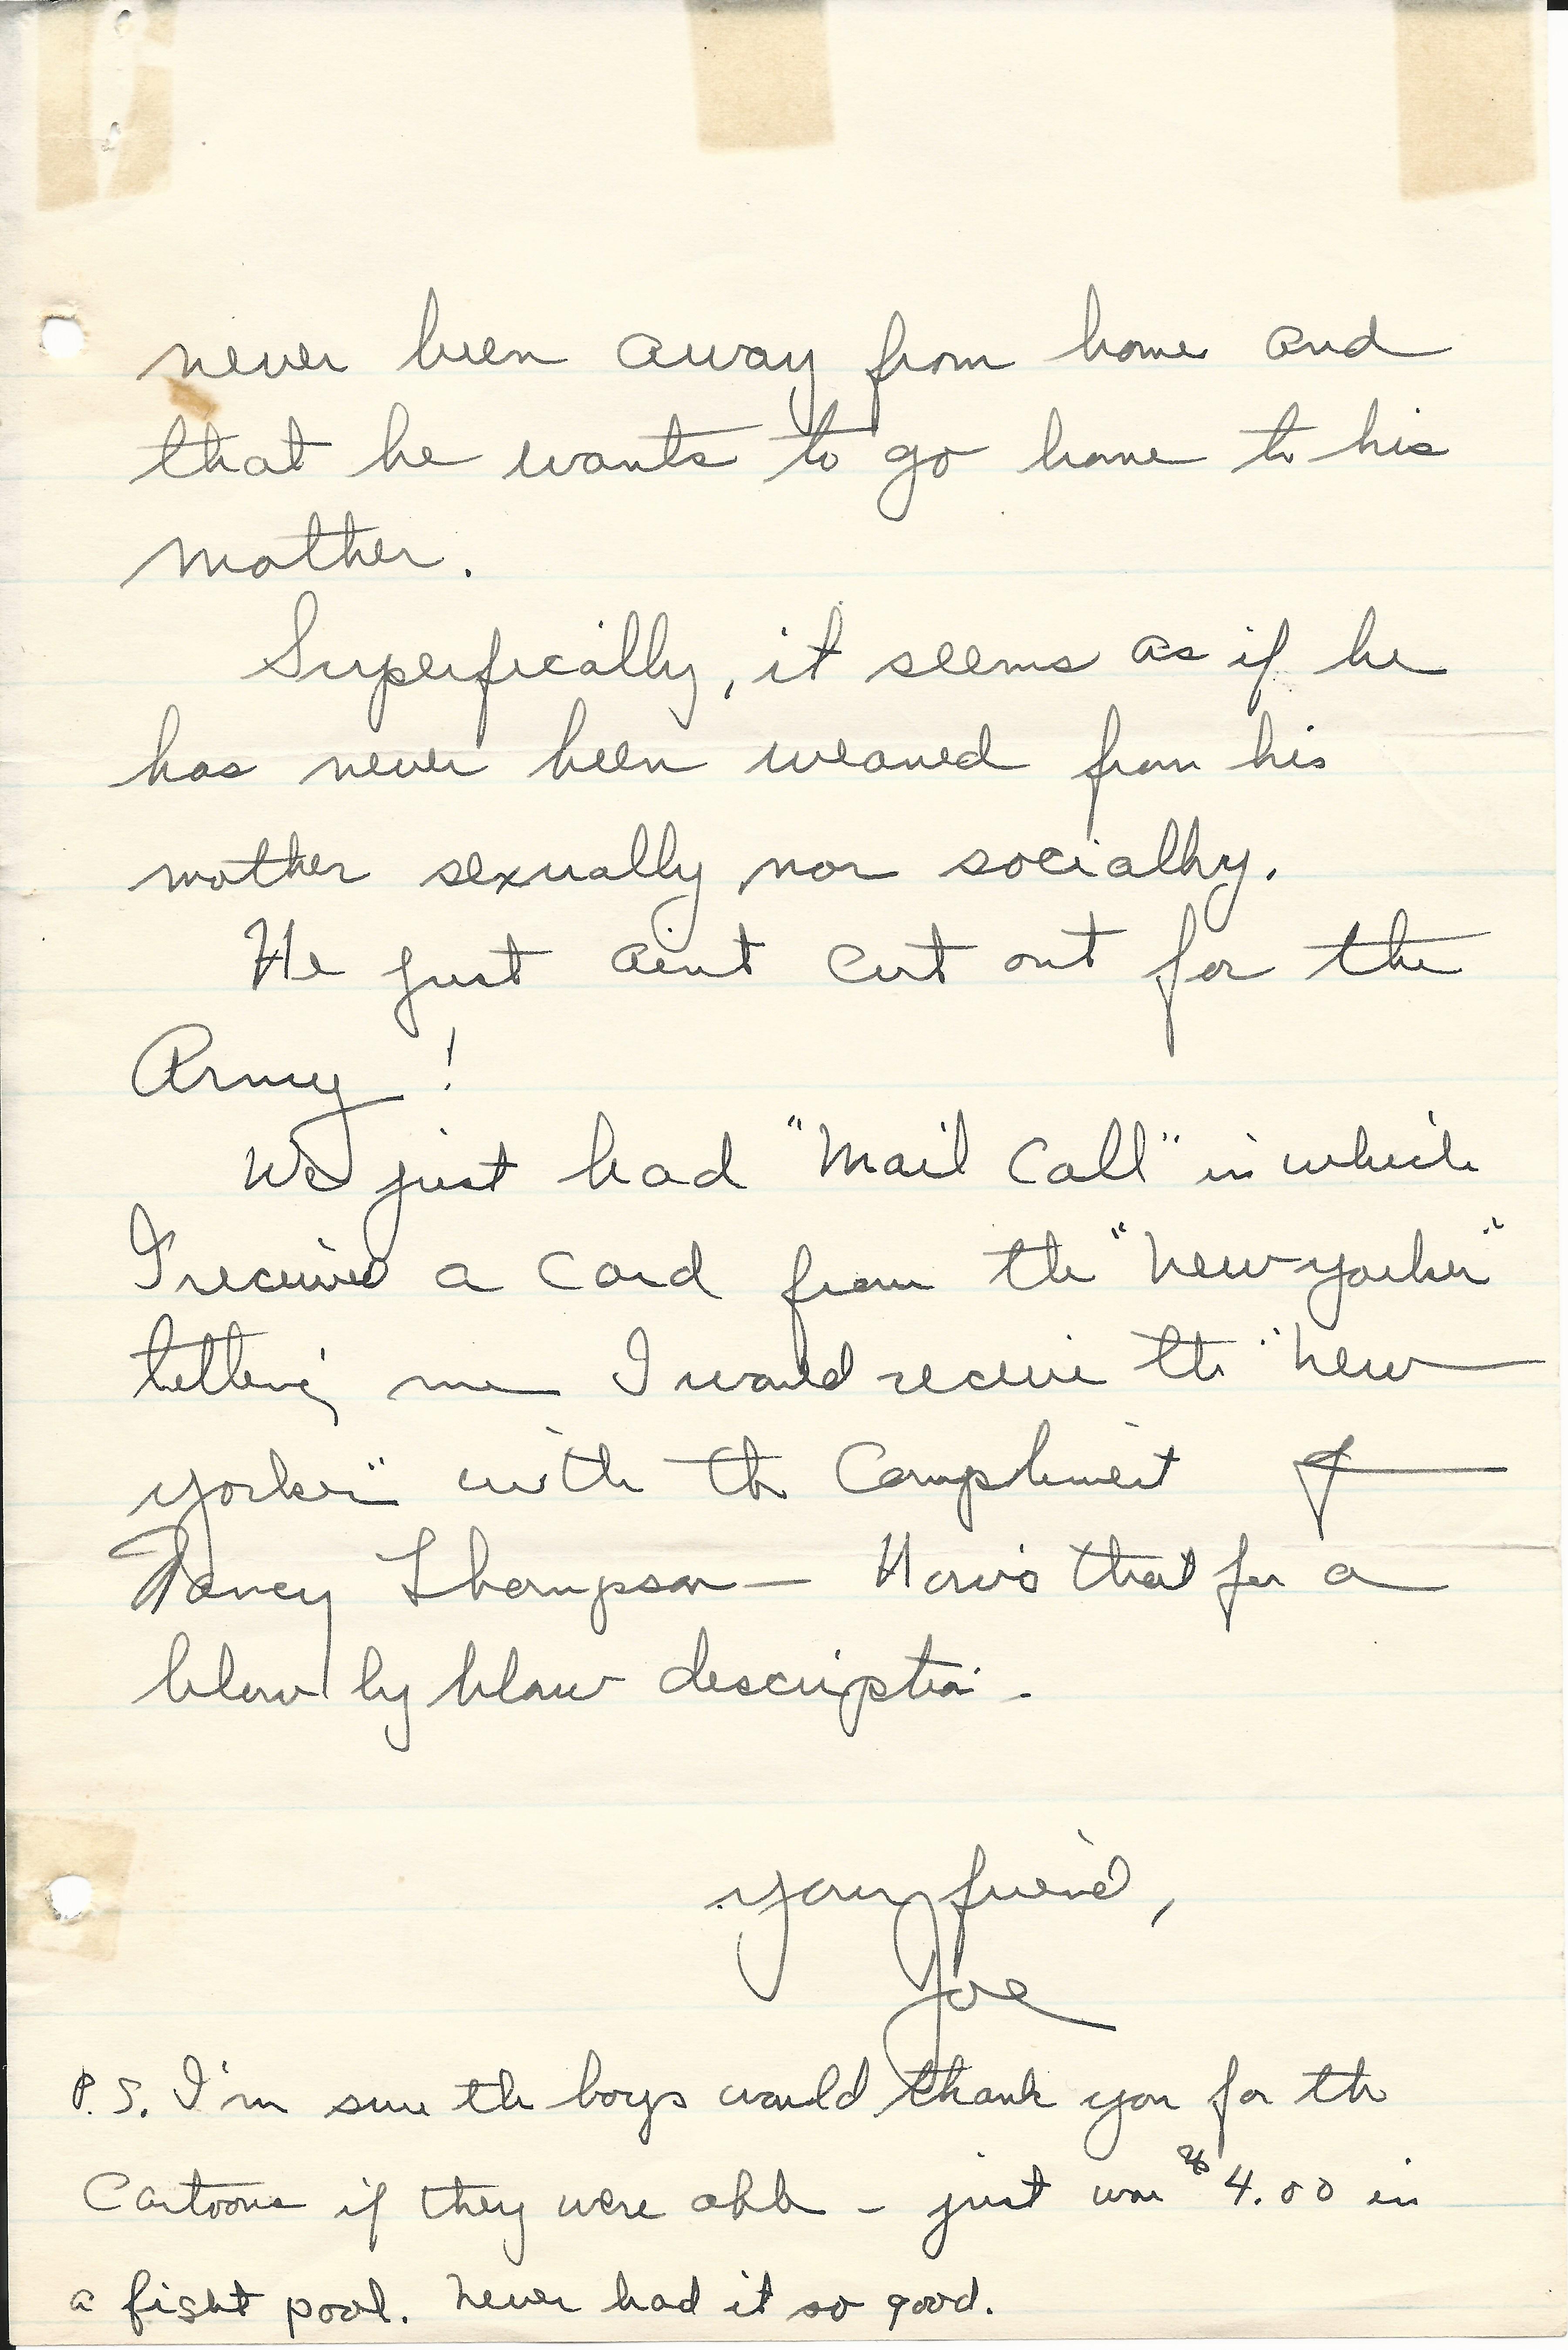 never been away from home and
that he wants to go home to his
mother.
Superfically, it seems as if he
has never been weaned from his
mother sexually nor socially.
He just aint cut out for the
Army !
We just had "Mail Call" in which
I received a card from the "New yorker"
telling me I would receive the "New
yorker" with the Compliment of
Nancy Thompson — How's that for a
blow by blow description.
your friend,
Joe
P.S. I'm sure the boys would thank you for the
Cartoons if they were able - just won $4.00 in
a fight pool. Never had it so good.